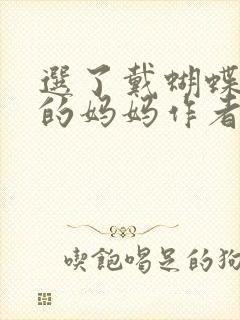 選了戴蝴蝶
的妈妈作者
喫飽唱足的狗